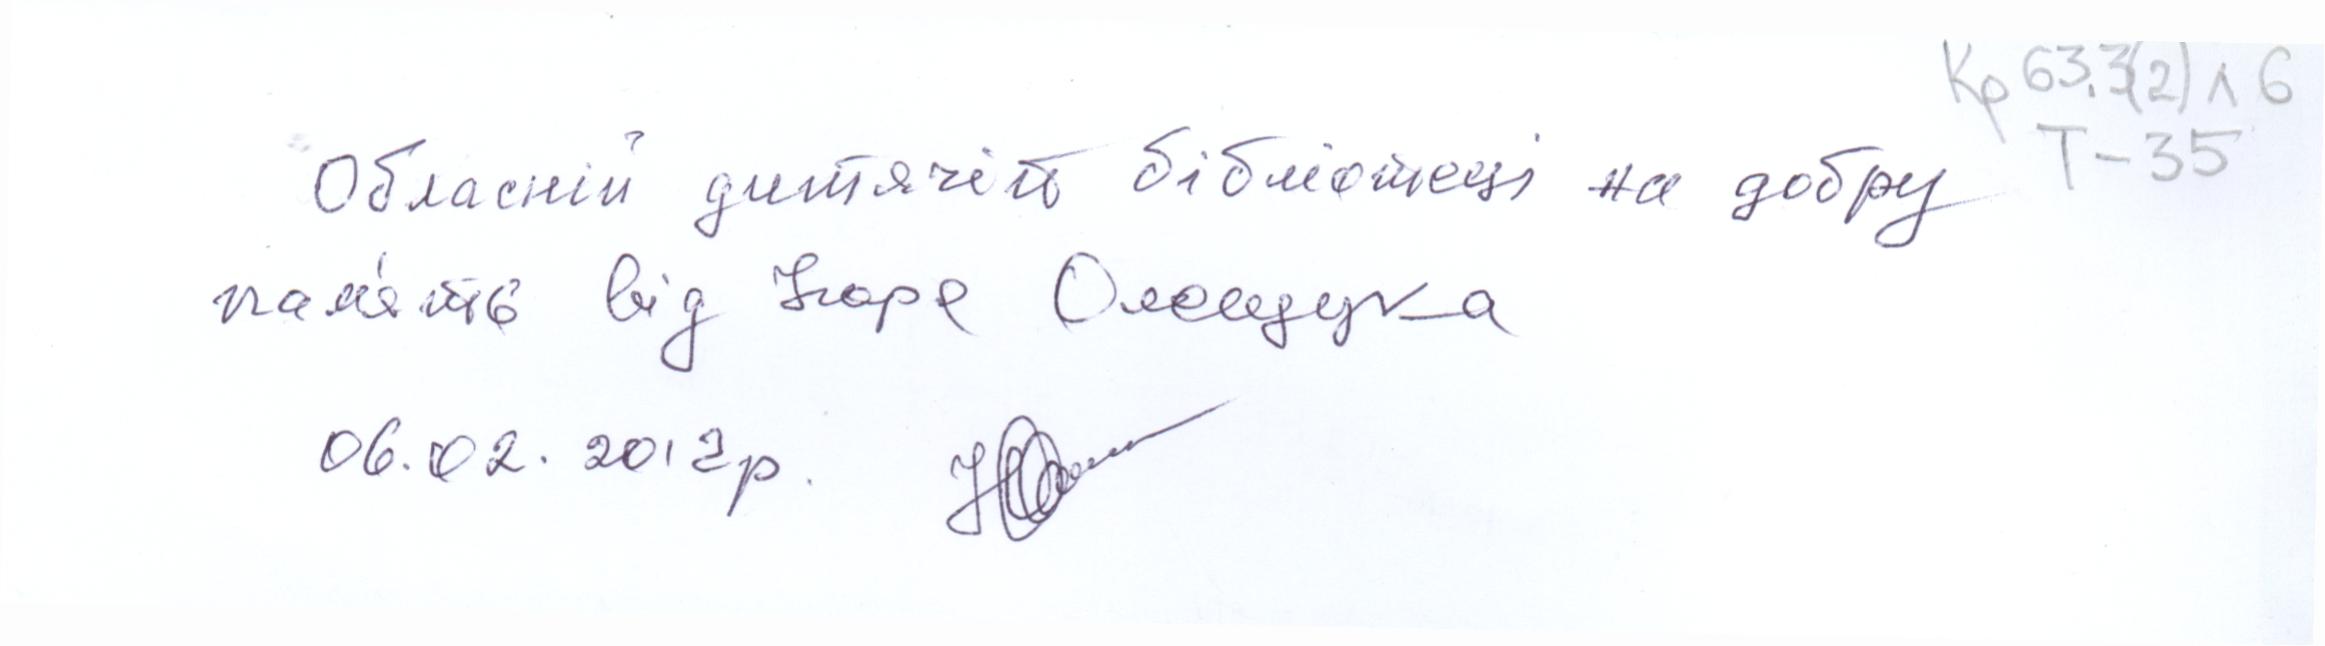 Кр 63.3(2) л 6
Т-35
Обласній дитячій бібліотеці на добру
пам'ять від Ігоря Олещука
06.02.2012р.